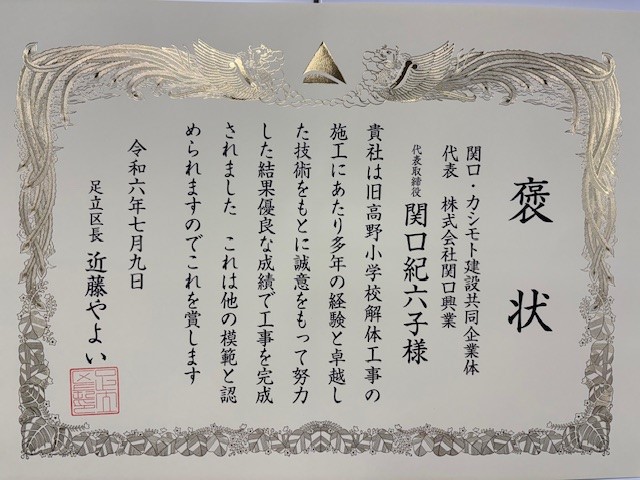 褒状
関口・カシモト建設共同企業体
代表 株式会社関口興業
代表取締役 関口紀六子様
貴社は旧高野小学校解体工事の
施工にあたり多年の経験と卓越し
た技術をもとに誠意をもって努力
した結果優良な成績で工事を完成
されました これは他の模範と認
められますのでこれを賞します
令和六年七月九日
足立区長 近藤やよい